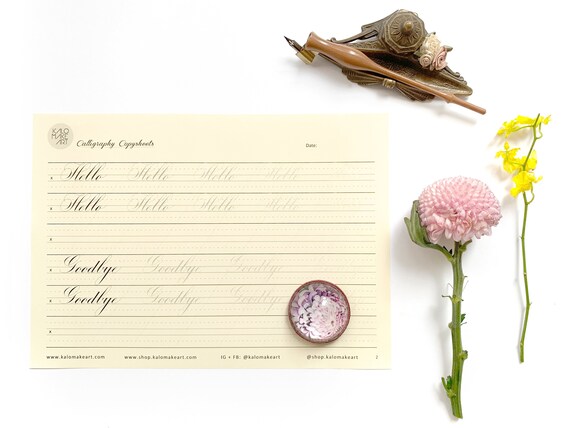 KALO
MAKE
ART
Calligraphy Copysheets
Date:
Hello Hello Hello Hello
Hello Hello Hello Hello
Goodbye Goodbye Goodbye
Goodbye Goodbye Goodbye
www.kalomakeart.com www.shop.kalomakeart.com IG + FB: @kalomakeart @shop.kalomakeart